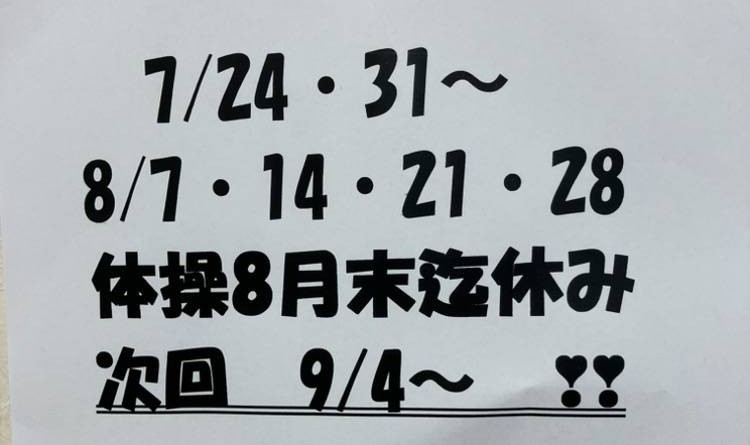 7/24・31〜
8/7・14・21・28
体操8月末迄休み
次回　9/4〜　❣❣